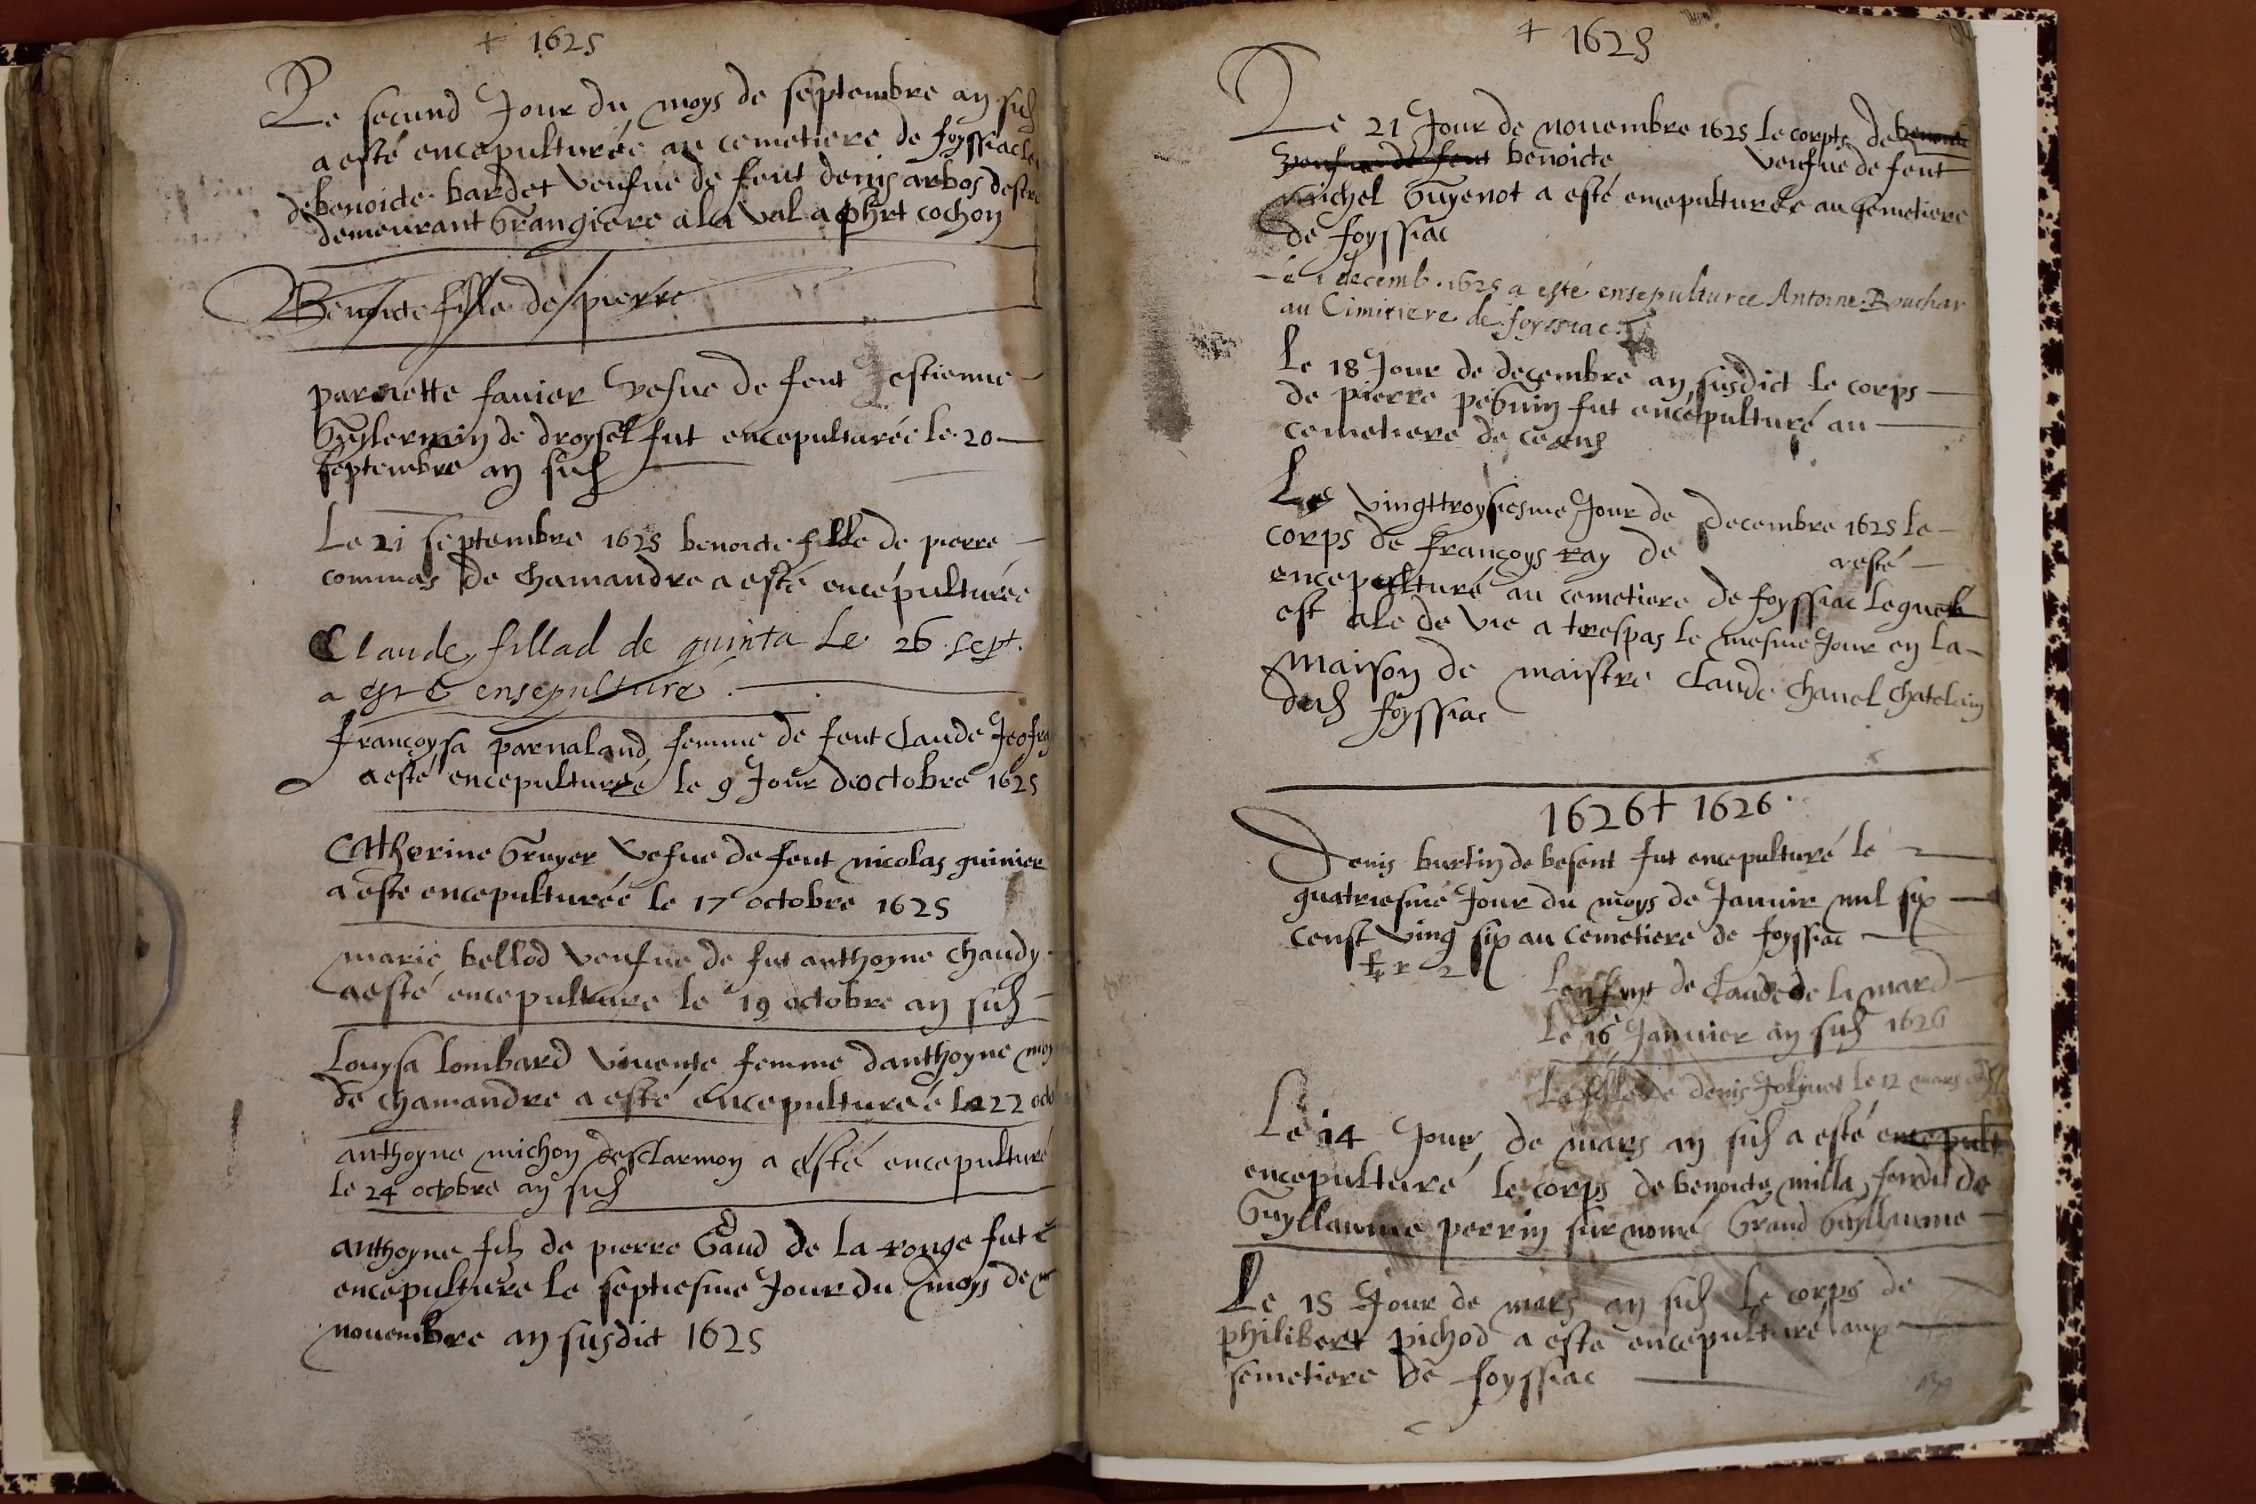 + 1625
Le second Jour du moys de septembre an susd
a esté encepulturée au cemetiere de foyssiac le
de benoicte bardet veufue de feut denis arbos destre
demeurant Grangiere a la val a phrt cochon
Benoicte fille de pierre
parnette fauier vefue de feut estienne
Guylermin de droysel fut encepulturée le 20
septembre an susd
Le 21 septembre 1625 benoicte fille de pierre
commas de chamandre a esté encepulturée
Claude fillad de quinta le 26 sept.
a esté ensepulturé.
françoysa parnaland femme de feut Claude Jeofray
a esté encepulturée le 9 Jour doctobre 1625
Catherine Gruyer vefue de feut nicolas guinier
a este encepulturée le 17 octobre 1625
marie bellod veufue de fut anthoyne chaudy
a esté encepulture le 19 octobre an susd
Louysa lombard viuente femme danthoyne moy
de chamandre a esté encepulturée le 22 octo
anthoyne michon desclarmoy a ésté encepulturé
le 24 octobre an susd
anthoyne filz de pierre Gaud de la rouge fut e
encepulture le septiesme Jour du moys de
nouembre an susdict 1625
+ 1625
Le 21 Jour de nouembre 1625 le corpts de benoicte
veufue de feut benoicte veufue de feut
michel Guyenot a esté encepulturée au semetiere
de foyssiac
Le 1 decemb. 1625 a esté ensepulturee Antoine Bouchar
au Cimitiere de foyssiac.
Le 18 Jour de decembre an susdict le corps
de pierre peguin fut encepulturé au
cemetiere de ceans
Le vingttroysiesme Jour de decembre 1625 le
corps de françoys ray de a esté
encepulturé au cemetiere de foyssiac lequel
est ale de vie a trespas le mesme Jour en la
maison de maistre Claude Chanel Chatelain
dud foyssiac
1626 + 1626
Denis burtin de besent fut encepulturé le
quatriesme Jour du moys de Januir mil six
censt ving six au cemetiere de foyssiac
Lenfant de Claude de la mard
Le 16 Januier an susd 1626
La fille de denis Jolynet le 12 mars
Le 14 Jour de mars an susd a esté encepult
encepulturé le corps de benoicte milla de
Guyllaume perrin surnomé Grand Guyllaume
Le 15 Jour de mars an susd le corps de
philibert pichod a este encepulturé aux
semetiere de foyssiac